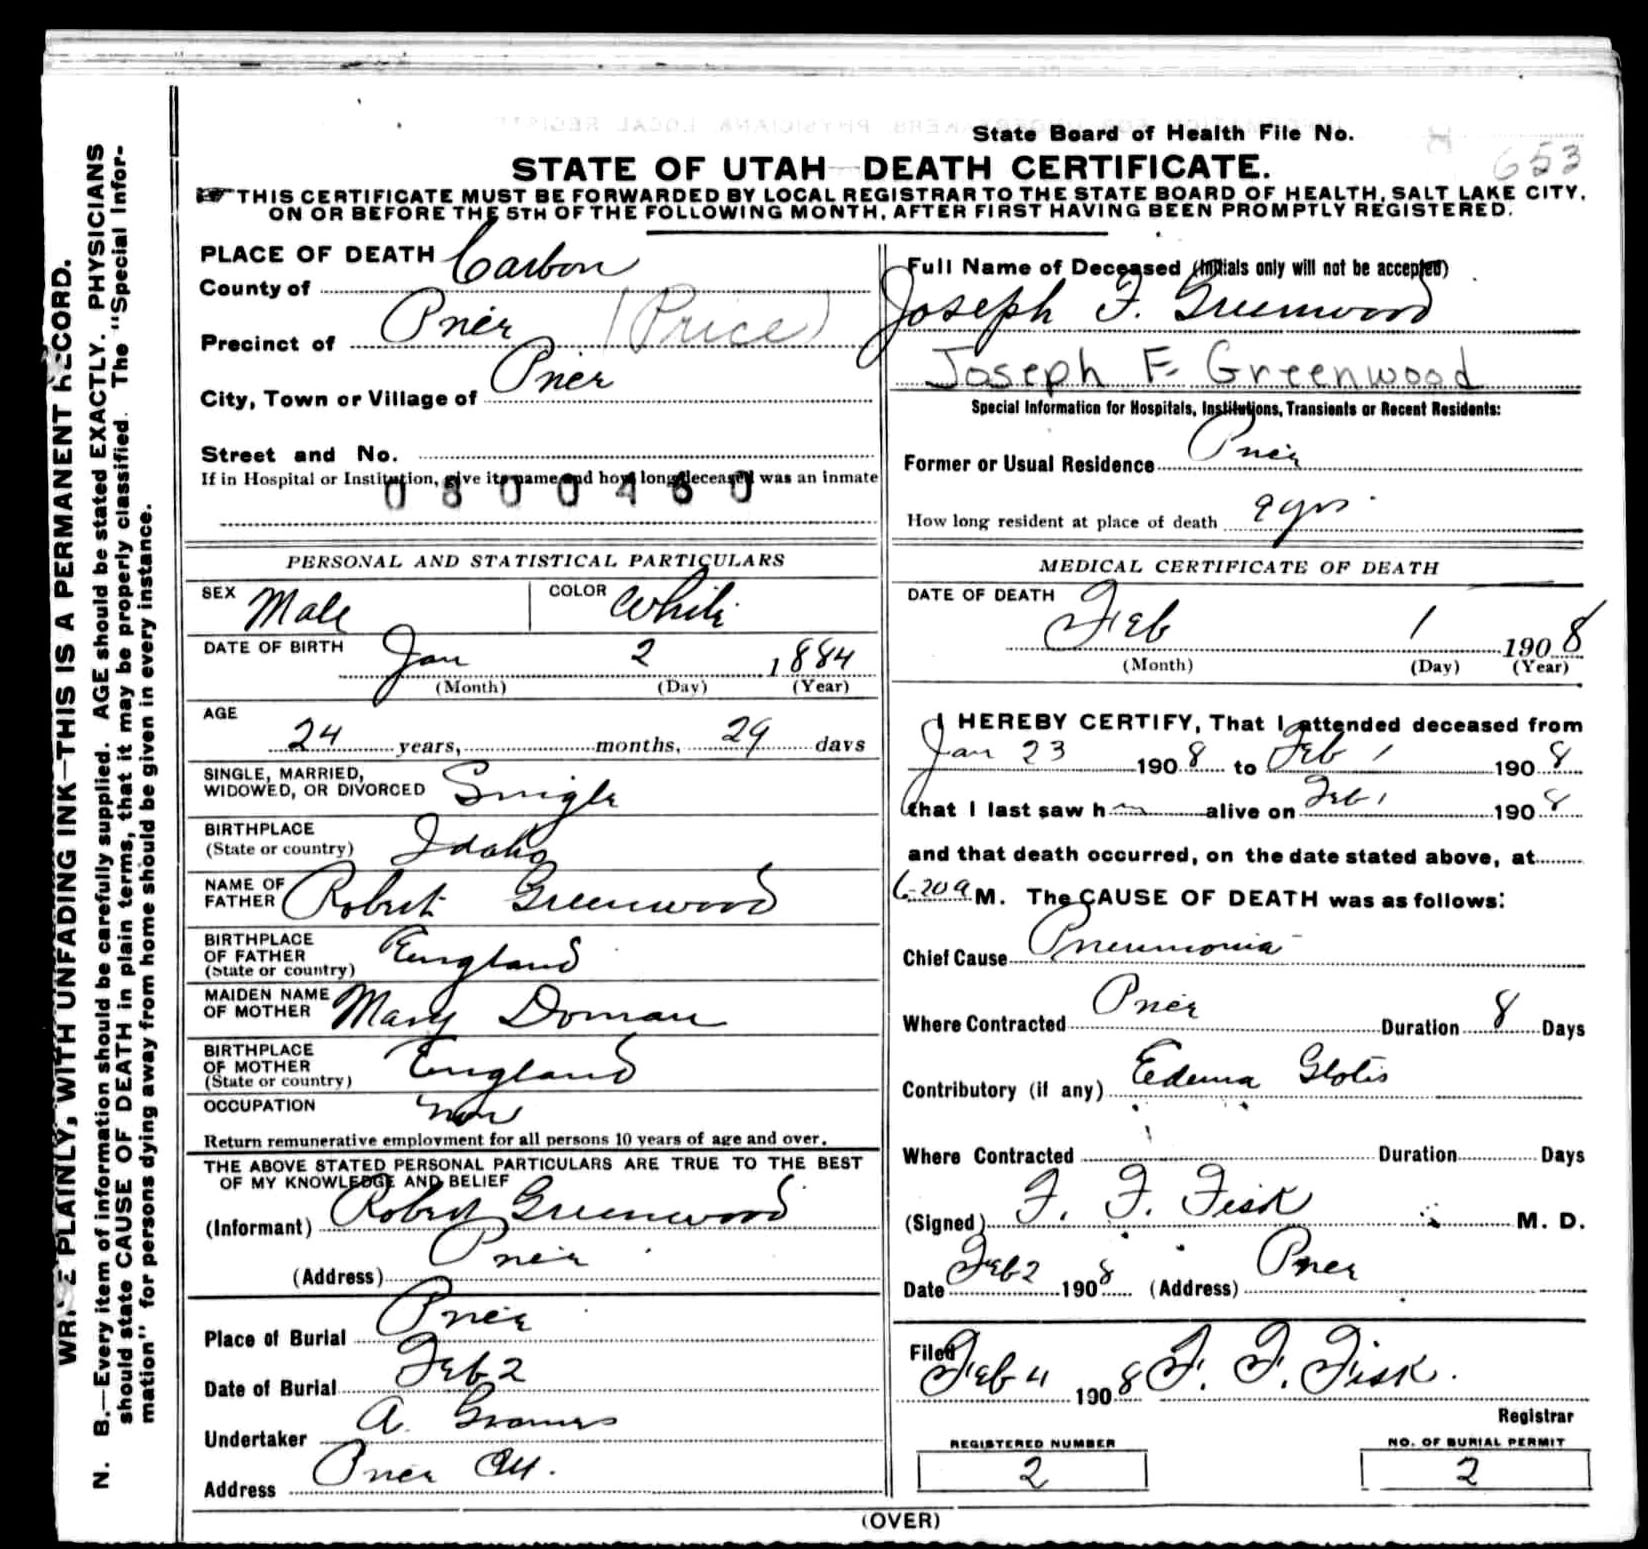 State Board of Health File No. 653
STATE OF UTAH—DEATH CERTIFICATE.
THIS CERTIFICATE MUST BE FORWARDED BY LOCAL REGISTRAR TO THE STATE BOARD OF HEALTH, SALT LAKE CITY,
ON OR BEFORE THE 5TH OF THE FOLLOWING MONTH, AFTER FIRST HAVING BEEN PROMPTLY REGISTERED.
WRITE PLAINLY, WITH UNFADING INK—THIS IS A PERMANENT RECORD.
N. B.—Every item of information should be carefully supplied. AGE should be stated EXACTLY. PHYSICIANS
should state CAUSE OF DEATH in plain terms, that it may be properly classified. The "Special Infor-
mation" for persons dying away from home should be given in every instance.
PLACE OF DEATH
County of Carbon
Precinct of Price (Price)
City, Town or Village of Price
Street and No.
If in Hospital or Institution, give its name and how long deceased was an inmate
0800460
PERSONAL AND STATISTICAL PARTICULARS
SEX Male COLOR White
DATE OF BIRTH Jan 2 1884
(Month) (Day) (Year)
AGE
24 years, months, 29 days
SINGLE, MARRIED,
WIDOWED, OR DIVORCED Single
BIRTHPLACE
(State or country) Idaho
NAME OF
FATHER Robert Greenwood
BIRTHPLACE
OF FATHER
(State or country) England
MAIDEN NAME
OF MOTHER Mary Doman
BIRTHPLACE
OF MOTHER
(State or country) England
OCCUPATION
Return remunerative employment for all persons 10 years of age and over.
THE ABOVE STATED PERSONAL PARTICULARS ARE TRUE TO THE BEST
OF MY KNOWLEDGE AND BELIEF
(Informant) Robert Greenwood
(Address) Price
Place of Burial Price
Date of Burial Feb 2
Undertaker A.
Address Price
Full Name of Deceased (Initials only will not be accepted)
Joseph F. Greenwood
Joseph F. Greenwood
Special Information for Hospitals, Institutions, Transients or Recent Residents:
Former or Usual Residence Price
How long resident at place of death 9 yrs
MEDICAL CERTIFICATE OF DEATH
DATE OF DEATH
Feb 1 1908
(Month) (Day) (Year)
I HEREBY CERTIFY, That I attended deceased from
Jan 23 1908 to Feb 1 1908
that I last saw him alive on Feb 1 1908
and that death occurred, on the date stated above, at
6-20 a M. The CAUSE OF DEATH was as follows:
Chief Cause Pneumonia
Where Contracted Price Duration 8 Days
Contributory (if any) Edema Glotis
Where Contracted Duration Days
(Signed) F. F. Fisk M. D.
Date Feb 2 1908 (Address) Price
Filed Feb 4 1908 F. F. Fisk.
Registrar
REGISTERED NUMBER
2
NO. OF BURIAL PERMIT
2
(OVER)